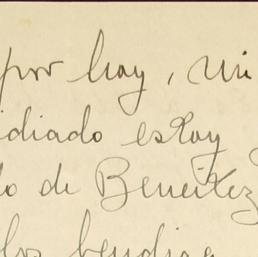 por hoy, mi
idiado estoy
do de Beneitez
los bendiga